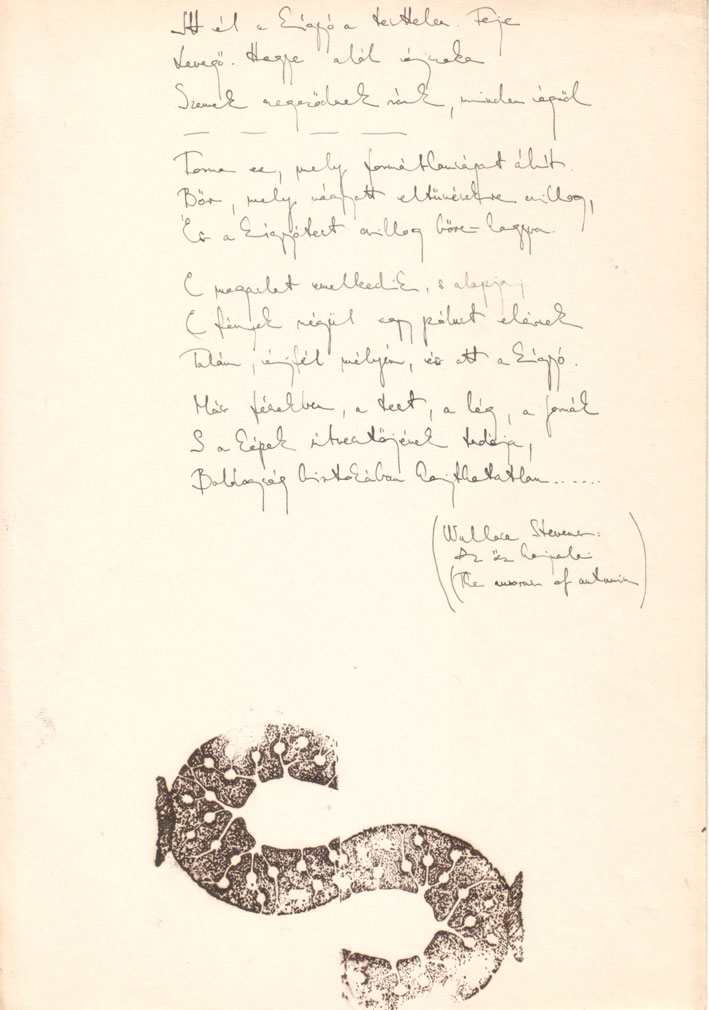 Itt él a Kígyó a testtelen. Feje
Levegő. Hegye alól éjszaka
Szemek szegeződnek ránk, minden égről
— — — —
Forma ez, mely formátlanságot áhít.
Bőr, mely vágyott eltűnésekre csillog,
És a Kígyótest csillog bőre-hagyva.
E magaslat emelkedik, s alapja,
E fények végül egy pólust elérnek
Talán, éjfél mélyén, és ott a Kígyó.
Más fészekben, a test, a lég, a formák
S a képek útvesztőjének tudója,
Boldogság birtokában hajthatatlan......
(Wallace Stevens:
Az ősz hajnalai
(The auroras of autumn)